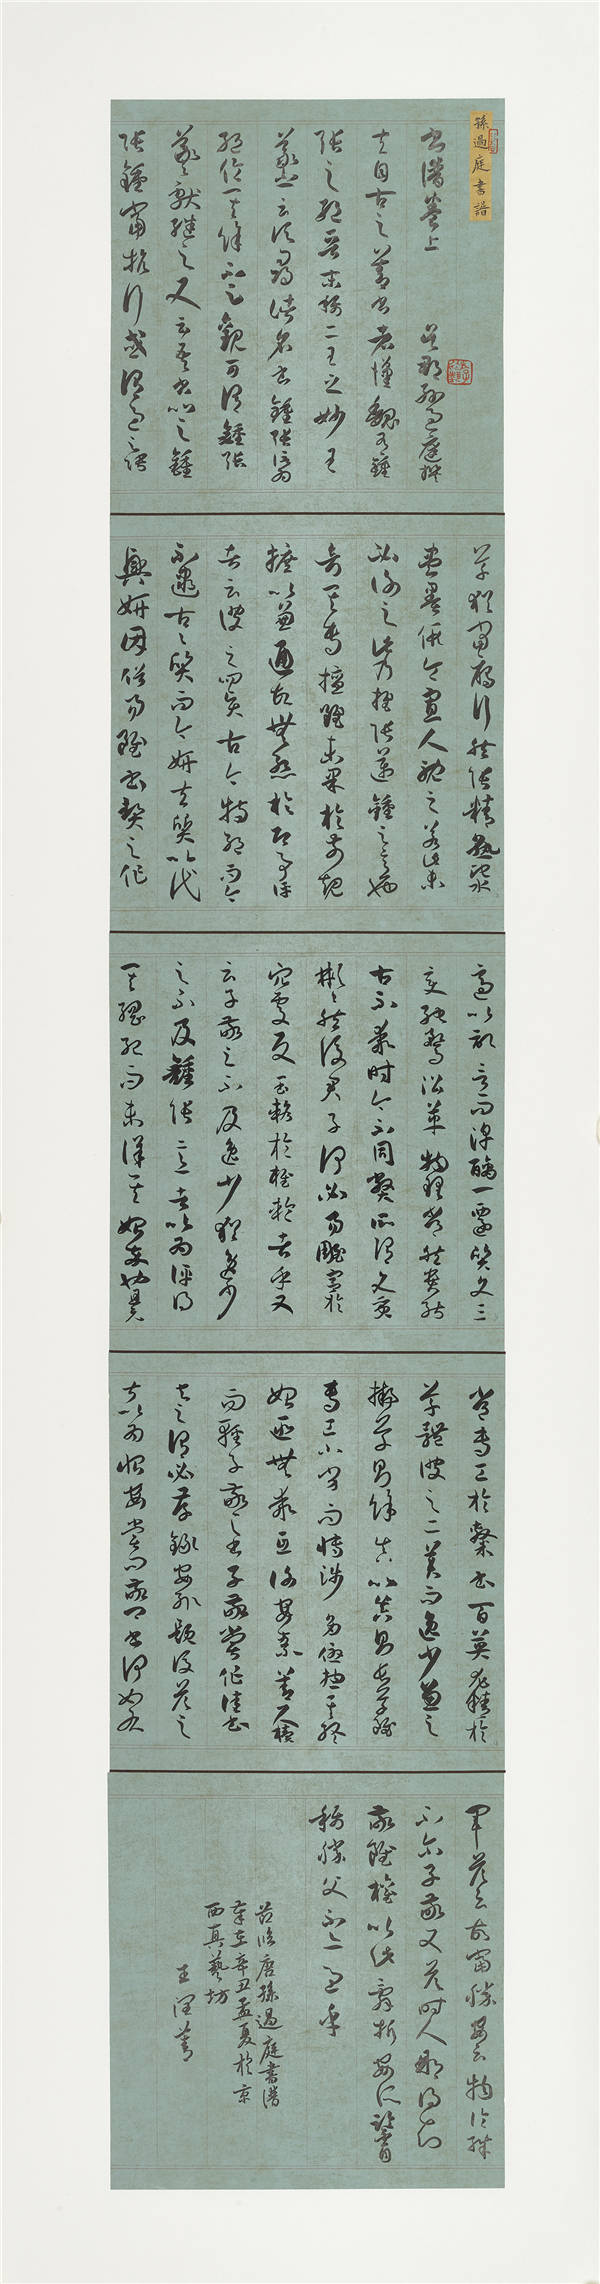 孫過庭書譜
書譜卷上 吳郡孫過庭撰
夫自古之善書者漢魏有鍾
張之絕晉末稱二王之妙王
羲之云頃尋諸名書鍾張信為
絕倫其餘不足觀可謂鍾張
羲獻繼之又云吾書比之鍾
張鍾當抗行或謂過之張
草猶當雁行然張精熟池水
盡墨假令寡人耽之若此未
必謝之此乃推張邁鍾之意也
考其專擅雖未果於前規
摭以兼通故無慚於即事評
者云彼之四賢古今特絕而今
不逮古古質而今妍夫質以代
興妍因俗易雖書契之作
適以記言而淳醨一遷質文三
變馳騖沿革物理常然貴能
古不乖時今不同弊所謂文質
彬彬然後君子何必易雕宮於
穴處反玉輅於椎輪者乎又
云子敬之不及逸少猶逸少
之不及鍾張意者以為評得
其綱紀而未詳其始卒也且元
常專工於隸書百英尤精於
草體彼之二美而逸少兼之
擬草則餘真比真則長草雖
專工小劣而博涉多優總其終
始匪無乖互謝安素善尺牘
而輕子敬之書子敬嘗作佳書
與之謂必存錄安輒題後答之
甚以為恨安嘗問敬卿書何如右
軍答云故當勝安云物論殊
不爾子敬又答時人那得知
敬雖權以此辭折安所鑒自
稱勝父不亦過乎
節臨唐孫過庭書譜
歲在辛丑孟夏於京
西真藝坊
王潤菁